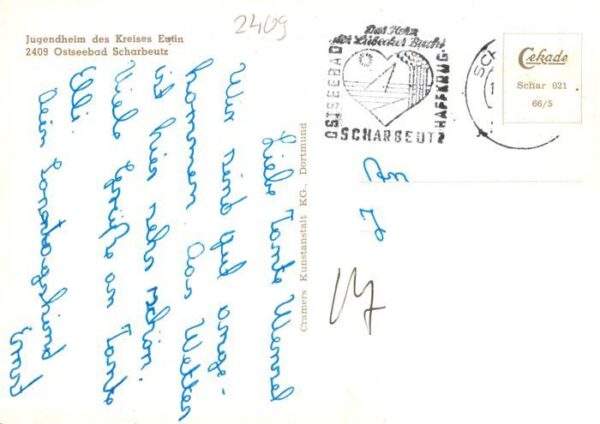 Jugendheim des Kreises Eutin
2409 Ostseebad Scharbeutz
2409
Das Herz
der Lübecker Bucht
OSTSEEBAD
SCHARBEUTZ
HAFFKRUG
Cekade
Schar 021
66/5
Cramers Kunstanstalt KG., Dortmund
Liebe Tante
Wir sind gut ange-
kommen. Das Wetter
ist hier sehr schön.
Viele Grüße an Tante
Elli.
Dein
Ernst